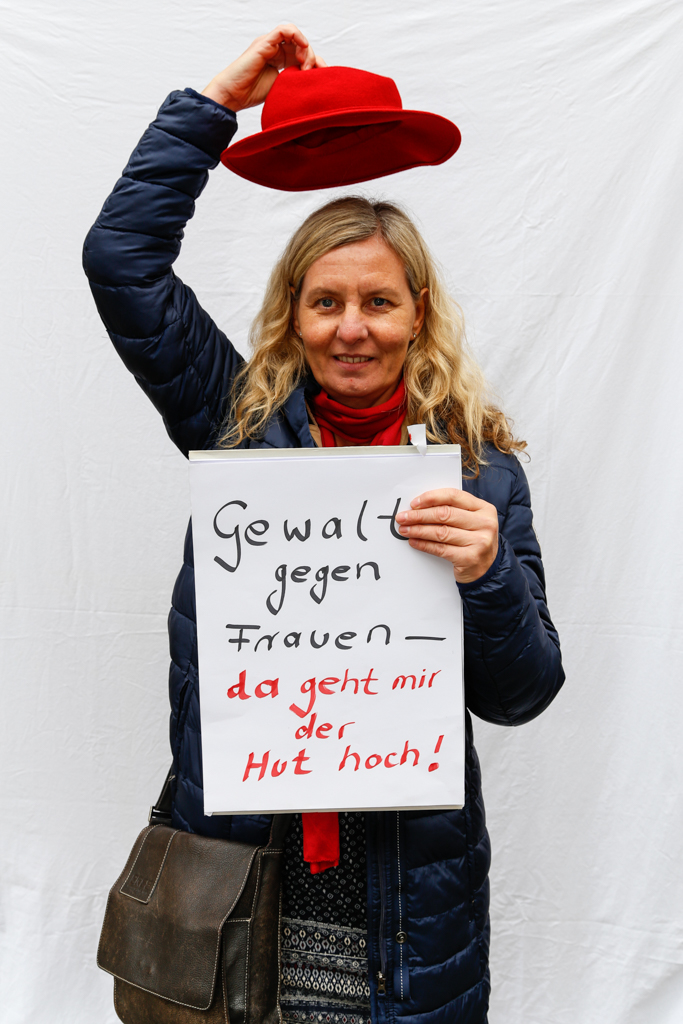 Gewalt
gegen
Frauen —
da geht mir
der
Hut hoch!